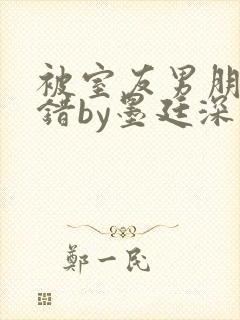 被室友男朋
错by墨廷深
鄭一民